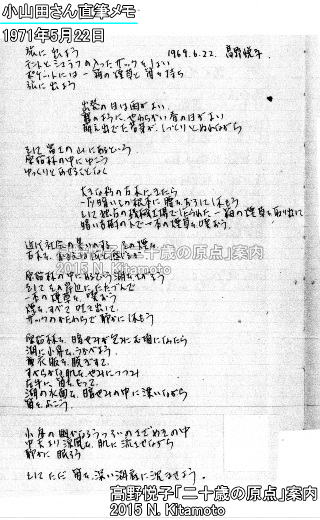 小山田さん直筆メモ
1971年5月22日
旅に出よう 1969.6.22. 高野悦子
テントとシュラフの入ったザックをしょい
ポケットには一箱の煙草と笛を持ち
旅に出よう
出発の日は雨がよい
霧のように、やわらかい春の雨がよい
萌え出でた若芽が、しっとりとぬれながら
そして富士の山にあるという
原始林の中にゆこう
ゆっくりとあせることなく
大きな杉の古木にきたら
一層暗いその根本に腰をおろして休もう
そして独占の機械工場で作られた一箱の煙草を取り出して
暗い古樹の下で一本の煙草を喫おう
近代社会の臭いのする、その煙を
古木よ、おまえは何と感じるか
高野悦子「二十歳の原点」案内
2015 N. Kitamoto
原始林の中にあるという湖をさがそう
そしてその岸辺にたたずんで
一本の煙草を喫おう
煙をすべて吐き出して
ザックのかたわらで静かに休もう
原始林を、暗やみが包みこむ頃になったら
湖に小舟をうかべよう
衣服を脱ぎすて
すべらかな肌をやみにつつみ
左手に笛をもって
湖の水面を、暗やみの中に漂いながら
笛をふこう
小舟の幽かなるうつろいのさざめきの中
中天より涼風を、肌に流させながら
静かに眠ろう
そしてただ笛を、深い湖底に沈ませよう。
高野悦子「二十歳の原点」案内
2015 N. Kitamoto